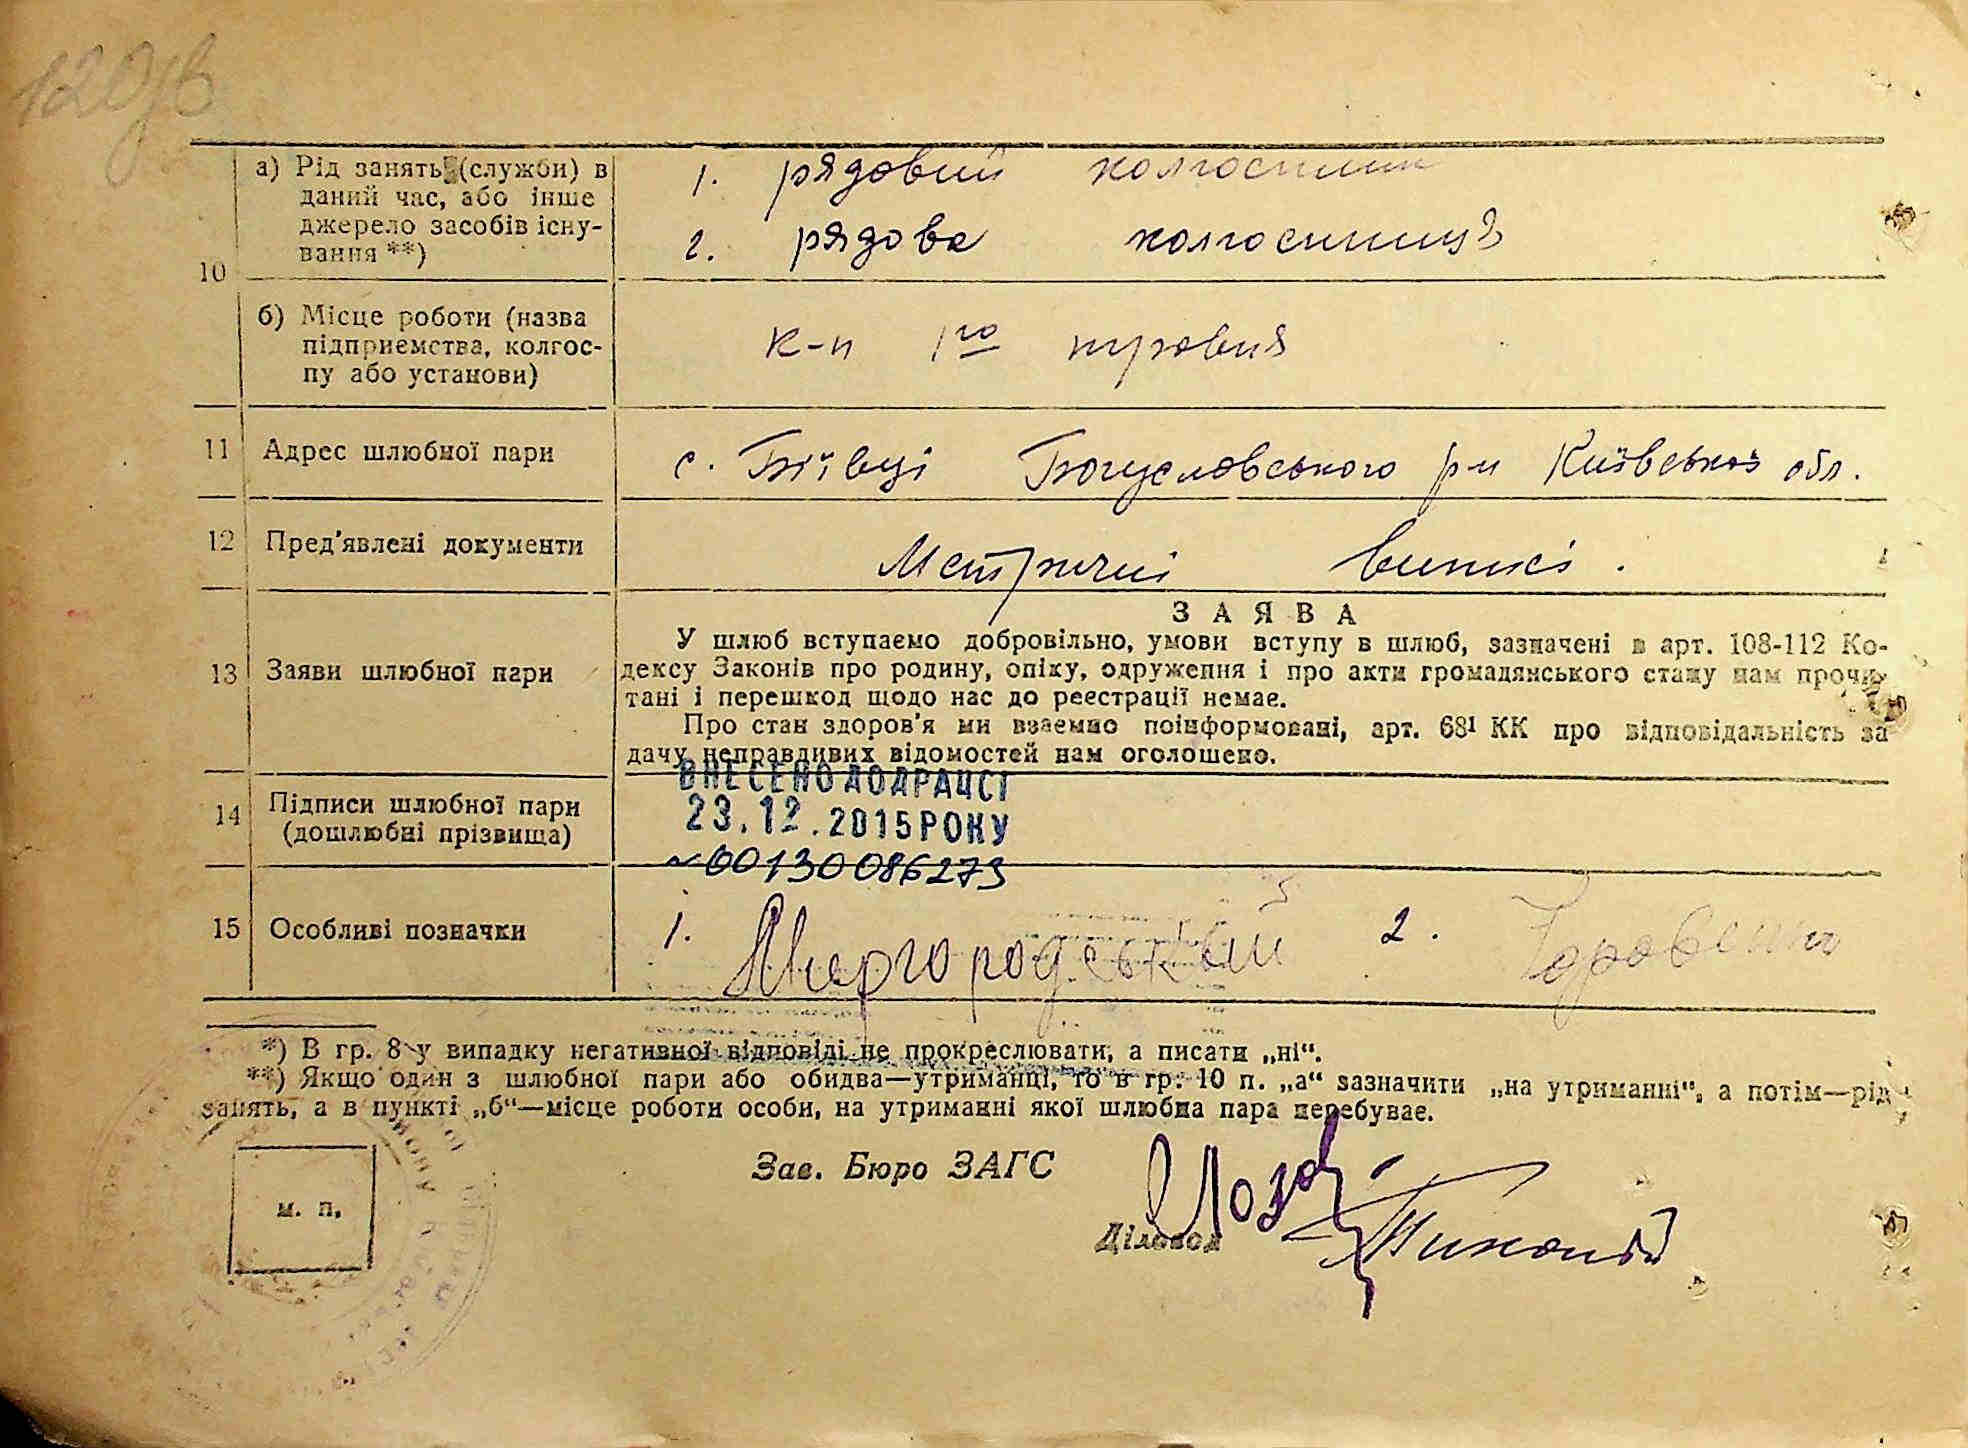 120зв
10
а) Рід занять (служби) в
даний час, або інше
джерело засобів існу-
вання **)
1. рядовий колгоспник
2. рядова колгоспниця
б) Місце роботи (назва
підприємства, колгос-
пу або установи)
к-п 1го травня
11 Адрес шлюбної пари
с. Біївці Богуславського р-н Київської обл.
12 Пред'явлені документи
Метричні виписі.
13 Заяви шлюбної пари
ЗАЯВА
У шлюб вступаємо добровільно, умови вступу в шлюб, зазначені в арт. 108-112 Ко-
дексу Законів про родину, опіку, одруження і про акти громадянського стану нам прочи-
тані і перешкод щодо нас до реєстрації немає.
Про стан здоров'я ми взаємно поінформовані, арт. 68¹ КК про відповідальність за
дачу неправдивих відомостей нам оголошено.
14 Підписи шлюбної пари
(дошлюбні прізвища)
ВНЕСЕНО ДО ДРАЦСГ
23.12.2015 РОКУ
~00130086273
15 Особливі позначки
1. Миргородський 2.
*) В гр. 8 у випадку негативної відповіді не прокреслювати, а писати „ні“.
**) Якщо один з шлюбної пари або обидва—утриманці, то в гр. 10 п. „а“ зазначити „на утриманні“, а потім—рід
занять, а в пункті „б“—місце роботи особи, на утриманні якої шлюбна пара перебуває.
м. п.
Зав. Бюро ЗАГС
Діловод